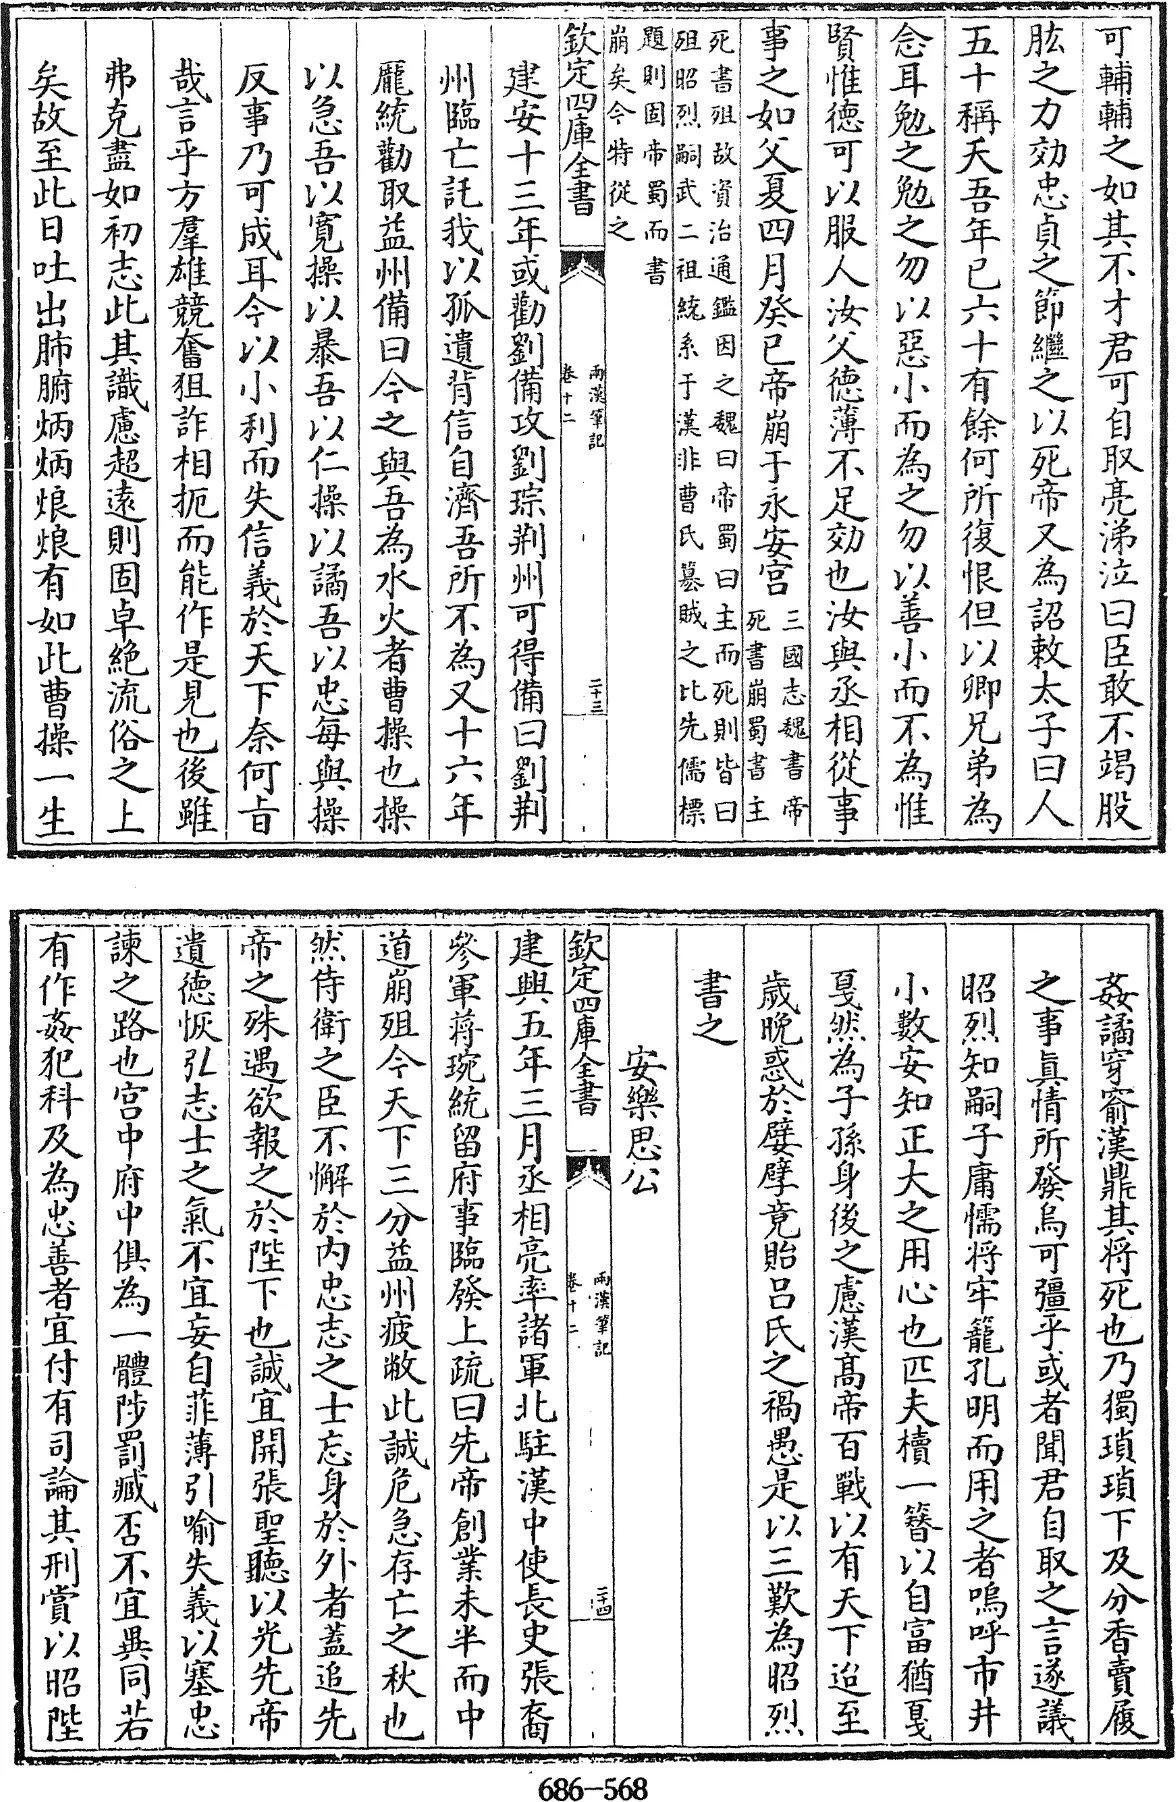 可輔輔之如其不才君可自取亮涕泣曰臣敢不竭股
肱之力効忠貞之節繼之以死帝又為詔敕太子曰人
五十稱夭吾年已六十有餘何所復恨但以卿兄弟為
念耳勉之勉之勿以惡小而為之勿以善小而不為惟
賢惟德可以服人汝父德薄不足効也汝與丞相從事
事之如父夏四月癸巳帝崩于永安宫
三國志魏書帝
死書崩蜀書主
死書殂故資治通鑑因之魏曰帝蜀曰主而死則皆曰
殂昭烈嗣武二祖統系于漢非曹氏簒賊之比先儒標
題則固帝蜀而書
崩矣今特從之
欽定四庫全書
兩漢筆記
卷十二
二十三
建安十三年或勸劉備攻劉琮荆州可得備曰劉荆
州臨亡託我以孤遺背信自濟吾所不為又十六年
龐統勸取益州備曰今之與吾為水火者曹操也操
以急吾以寛操以暴吾以仁操以譎吾以忠每與操
反事乃可成耳今以小利而失信義於天下奈何㫖
哉言乎方羣雄競奮狙詐相扼而能作是見也後雖
弗克盡如初志此其識慮超遠則固卓絶流俗之上
矣故至此日吐出肺腑炳炳烺烺有如此曹操一生
姦譎穿窬漢鼎其将死也乃獨瑣瑣下及分香賣履
之事真情所發烏可彊乎或者聞君自取之言遂議
昭烈知嗣子庸懦将牢籠孔明而用之者嗚呼市井
小數安知正大之用心也匹夫櫝一簪以自富猶戛
戛然為子孫身後之慮漢髙帝百戰以有天下迨至
歳晩惑於嬖孽竟貽吕氏之禍愚是以三歎為昭烈
書之
安樂思公
欽定四庫全書
兩漢筆記
卷十二
二十四
建興五年三月丞相亮率諸軍北駐漢中使長史張裔
參軍蒋琬統留府事臨發上疏曰先帝創業未半而中
道崩殂今天下三分益州疲敝此誠危急存亡之秋也
然侍衛之臣不懈於内忠志之士忘身於外者蓋追先
帝之殊遇欲報之於陛下也誠宜開張聖聽以光先帝
遺德恢弘志士之氣不宜妄自菲薄引喻失義以塞忠
諫之路也宫中府中俱為一體陟罰臧否不宜異同若
有作姦犯科及為忠善者宜付有司論其刑賞以昭陛
686-568